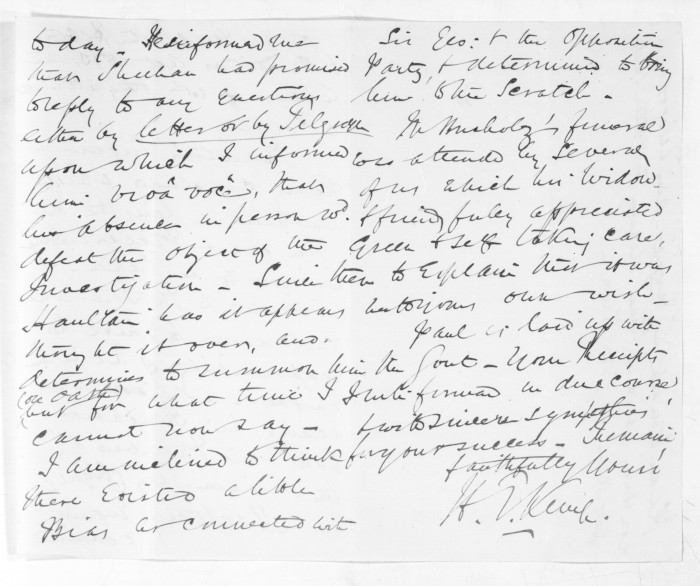 to day - He informed me
that Sheehan had promised
to reply to any Questions
either by letter or by Telegram
upon which I informed
him vivâ voce, that
his absence in person wd.
defeat the object of the
Investigation - Since then
Haultain has it appears
thought it over, and
determines to summon him
(on oath)
but for what time I
cannot now say -
I am inclined to think
there Existed a little
Bias as connected with
Sir Geo: & the Opposition
Party, & determined to bring
him to the Scratch -
funeral
was attended by Several
of us which his Widow
& friends fully appreciated
Green & Self taking care,
to Explain that it was
own wish -
Paul is laid up with
the Gout - Your Receipts
I will forward in due course
& with sincere sympathies
for your success - I remain
faithfully Yours
H. T.